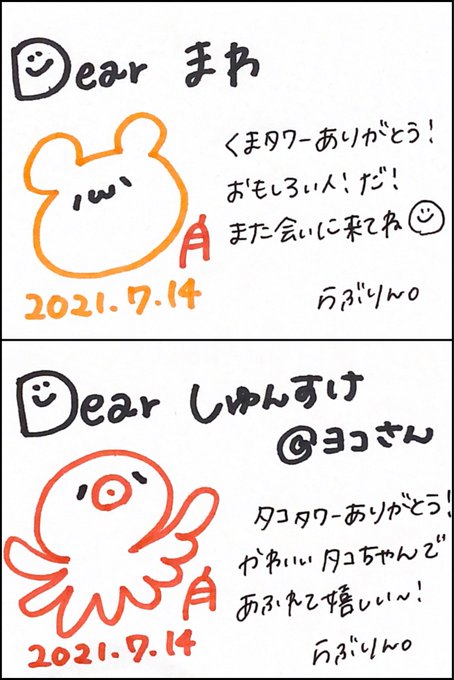 Dear まわ
くまタワーありがとう!
おもしろい人!だ!
また会いに来てね
2021.7.14
らぶりん。
Dear しゅんすけ
@ヨコさん
タコタワーありがとう!
かわいいタコちゃんで
あふれて嬉しい〜!
2021.7.14
らぶりん。